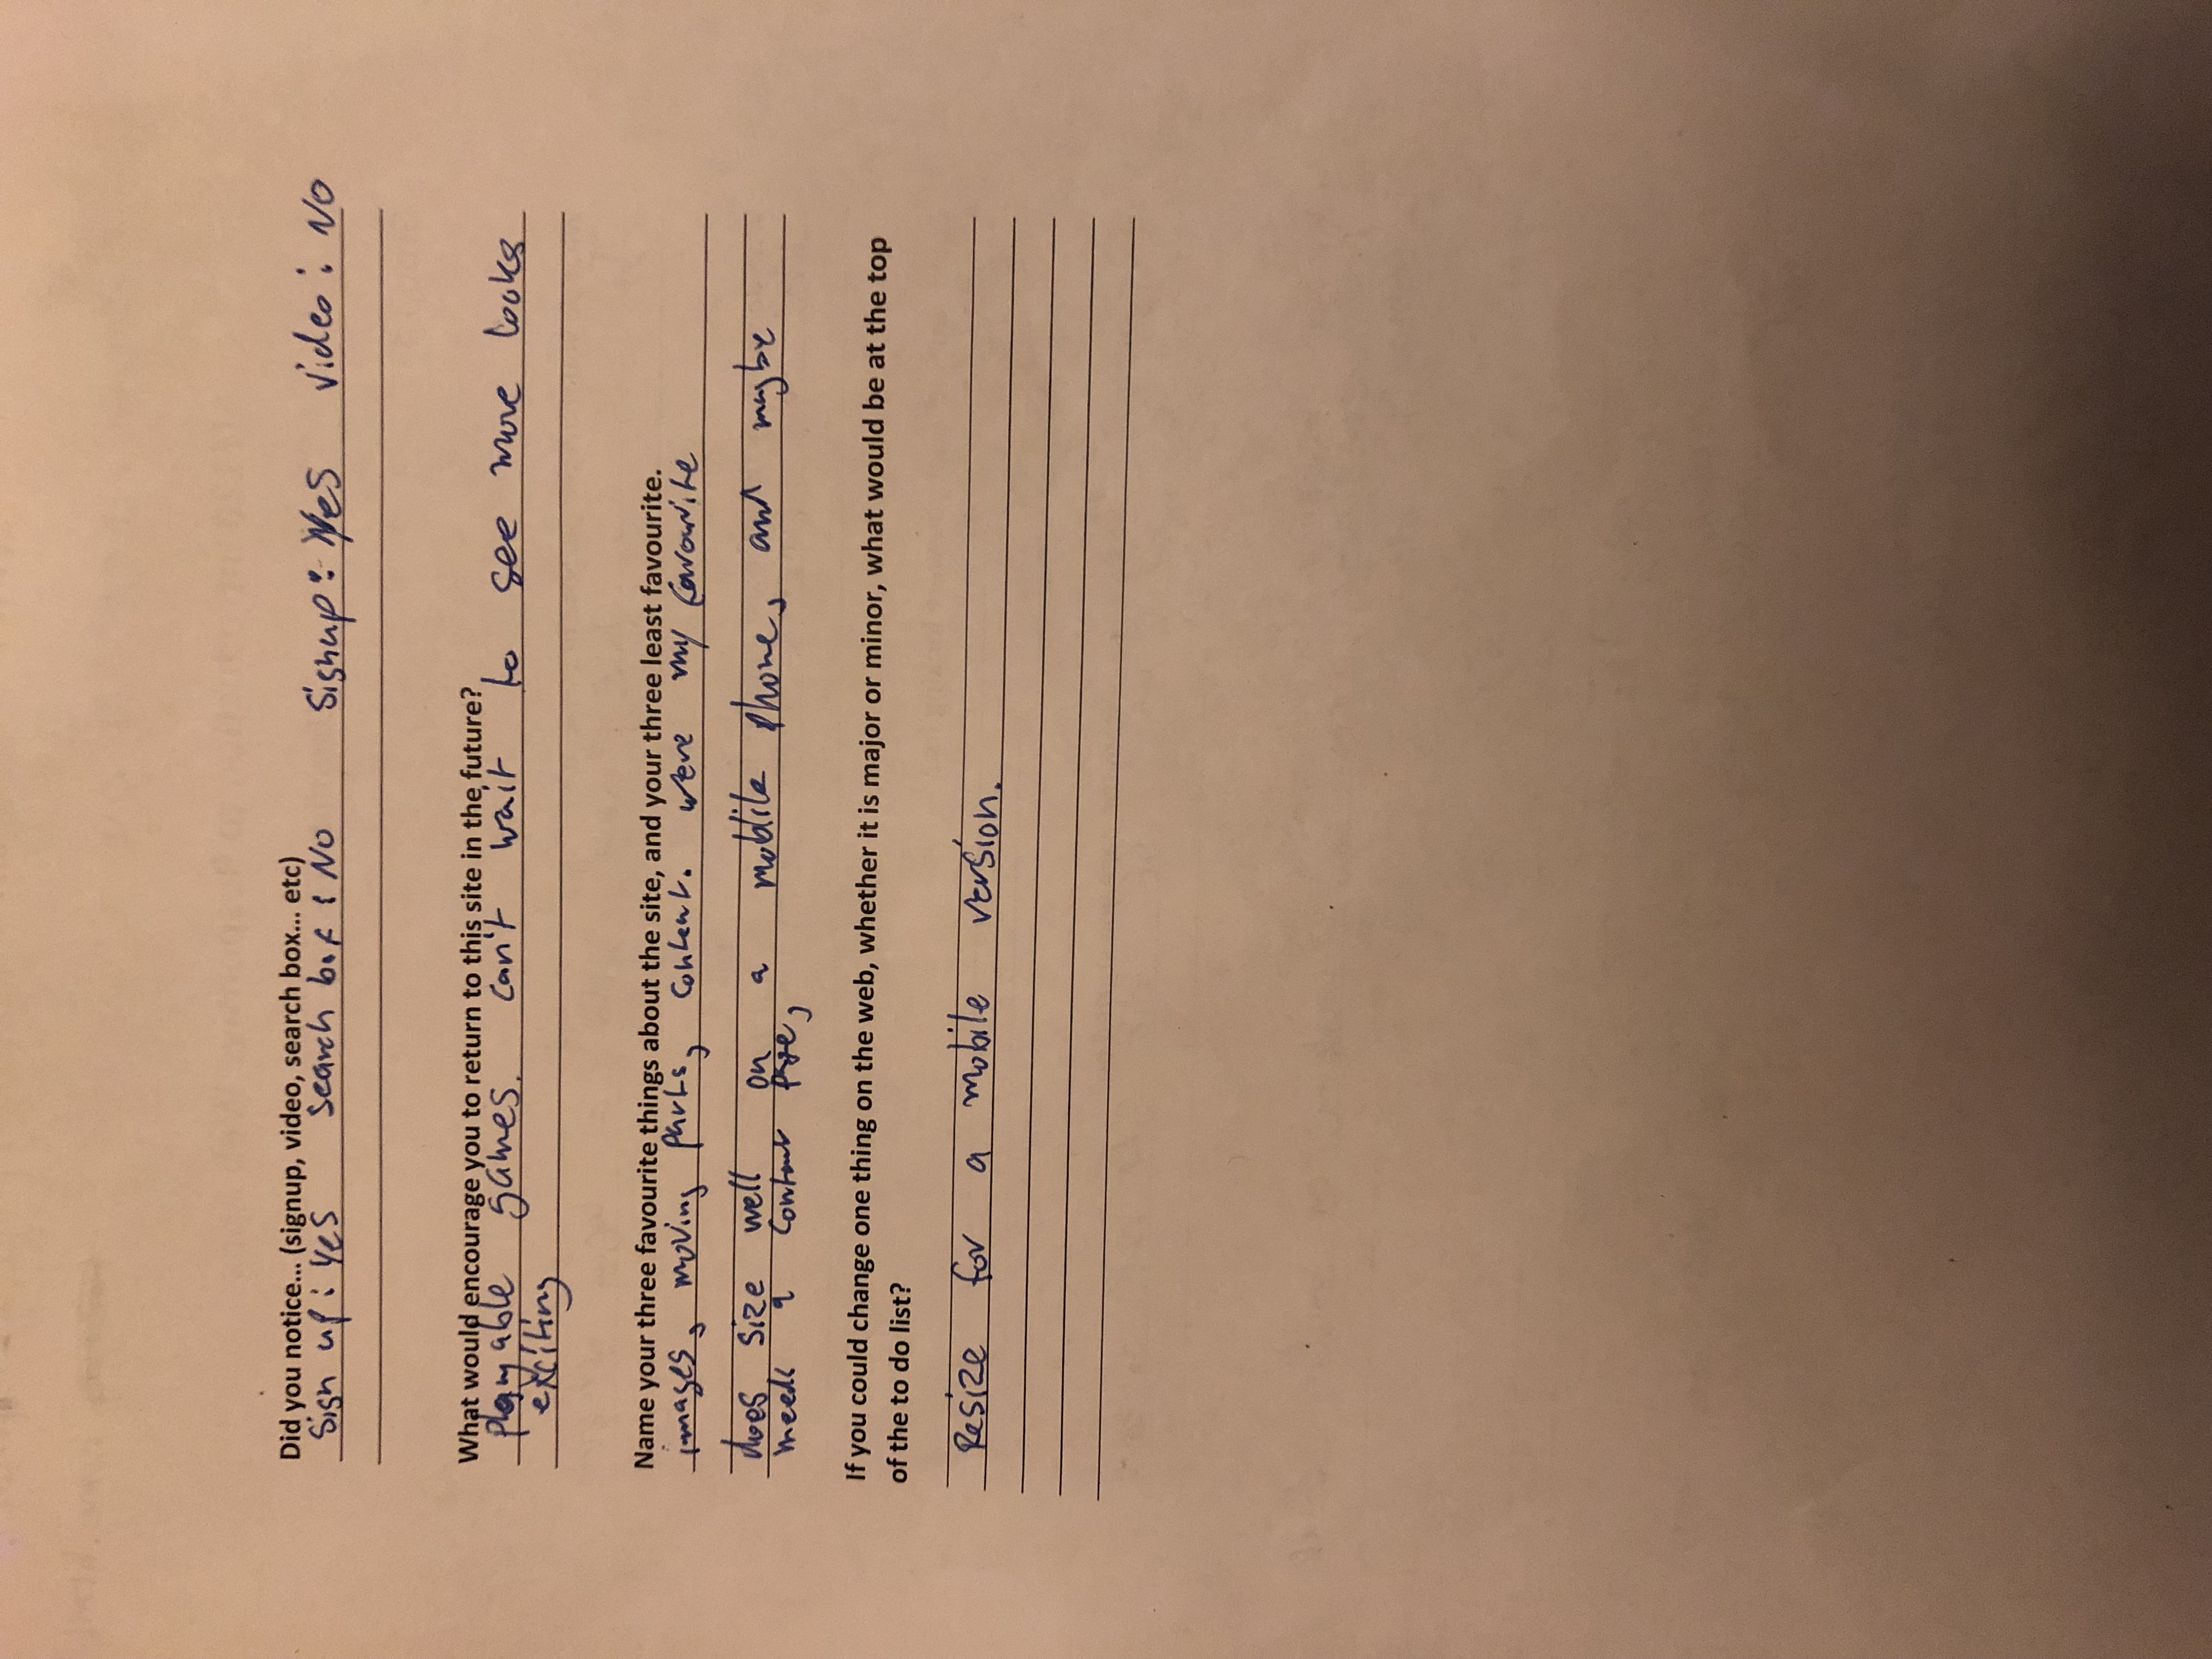 Did you notice... (signup, video, search box... etc)
Sign up : Yes search box : No Signup : Yes Video : No
What would encourage you to return to this site in the future?
playable games. can't wait to see more looks
exciting
Name your three favourite things about the site, and your three least favourite.
images, moving parts, content. were my favourite
does size well on a mobile phone, and maybe
a
If you could change one thing on the web, whether it is major or minor, what would be at the top
of the to do list?
Resize for a mobile version.